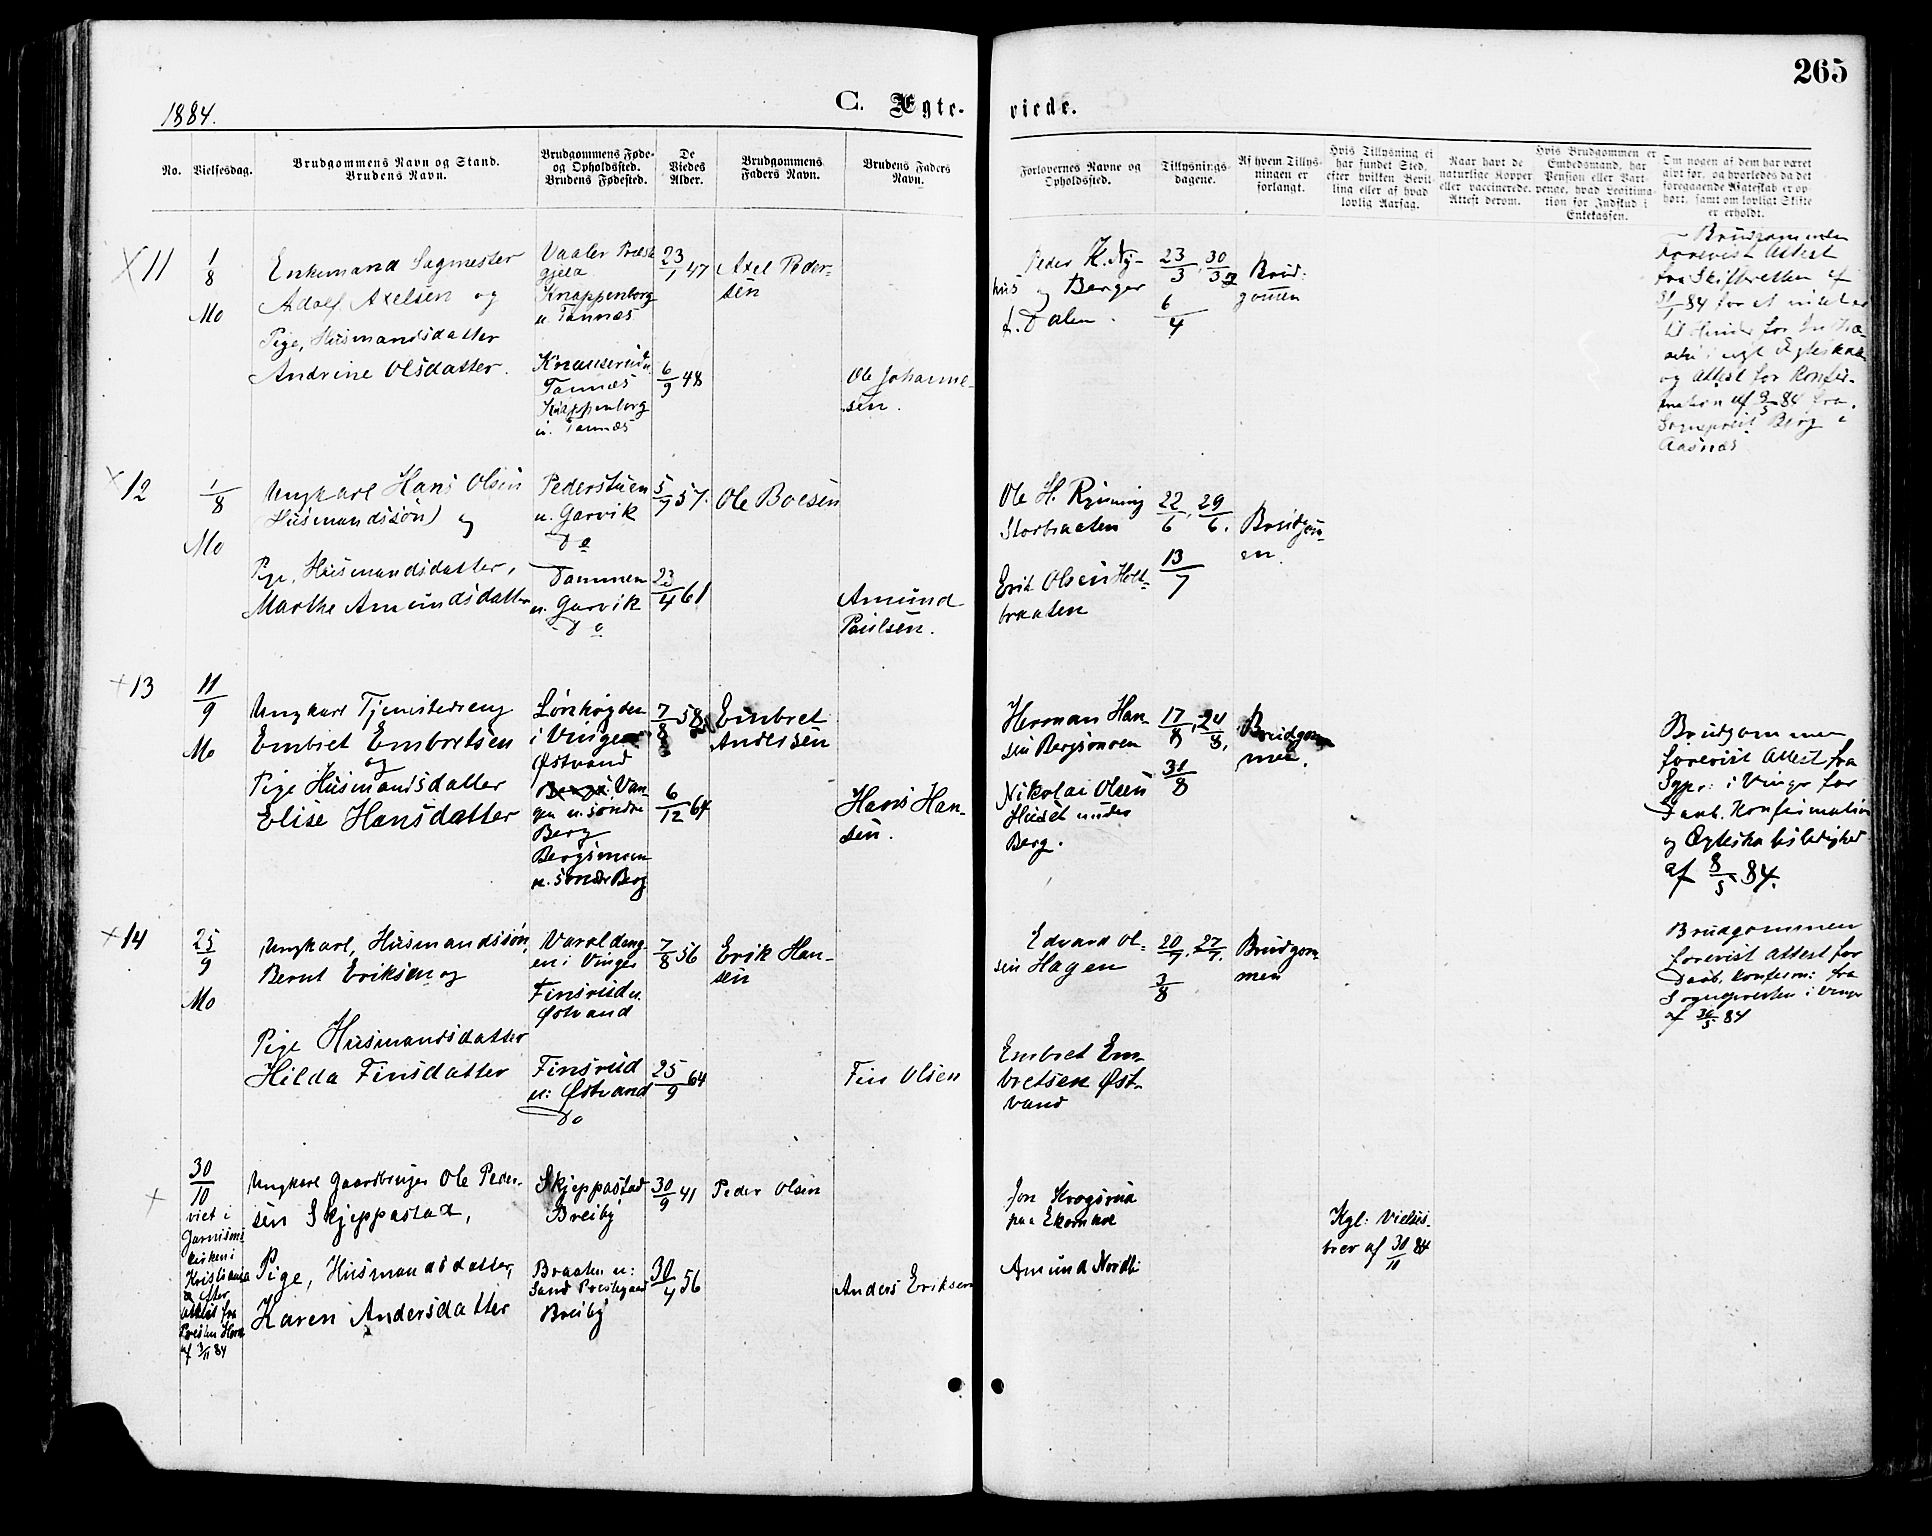 265
1884.
C. Ægte-
viede.
No.
Vielsesdag.
Brudgommens Navn og Stand.
Brudens Navn.
Brudgommens Føde-
og Opholdssted.
Brudens Fødested.
De
Viedes
Alder.
Brudgommens
Faders Navn.
Brudens Faders
Navn.
Forlovernes Navne og
Opholdssted.
Tillysnings-
dagene.
Af hvem Tillys-
ningen er
forlangt.
Hvis Tillysning ei
har fundet Sted,
efter hvilken Bevil-
ling eller af hvad
lovlig Aarsag.
Naar havt de
naturlige Kopper
eller vaccinerede.
Attest derom.
Hvis Brudgommen er
Embedsmand, har
Pension eller Vart-
penge, hvad Legitima-
tion for Indskud i
Enkekassen.
Om nogen af dem har været
gift før, og hvorledes da det
foregaaende Ægteskab er op-
hørt, samt om lovligt Skifte
er erholdt.
11
1/8
Mo
Enkemand Sagmester
Adolf Axelsen og
Pige, Husmandsdatter
Andrine Olsdatter.
Vaaler Præste
gjeld
Knappenborg
u. Tannæs
u.
Tannæs
Knappenborg
u. Tannæs
23/1 47
6/9 48
Axel Peder-
sen
Ole Johanne-
sen.
Peder K. Ny-
hus og Berger
Dalen.
23/3, 30/3
6/4
Brud-
gommen
Brudgommen
Forevist Attest
fra Skifteretten af
84 for at intet er
til Hinder for
nyt Ægteskab
og Attest for Konfir-
mation af 84 fra
Sognepræst Berg i
Aasnæs
12
1/8
Mo
Ungkarl Hans Olsen
(Husmandssøn) og
Pige, Husmandsdatter,
Marthe Amundsdatter
Pederstuen
u. Garvik
Do
Dammen
u. Garvik
Do
5/7 57.
23/4 61
Ole Boesen
Amund
Paulsen.
Ole H. Rysning
Storbraaten
Erik Olsen Holt-
braaten
22/6, 29/6.
13/7
Brudgom-
en.
13
11/9
Mo
Ungkarl Tjenestedreng
Embret Embretsen
og
Pige Husmandsdatter
Elise Hansdatter
Lønhøgden
i Vinger
Østvand
Van-
gen u. søndre
Berg
Bergsmoen
u. søndre Berg
7/8 58
6/12 64
Embret
Andersen
Hans Han-
sen.
Herman Han-
sen Bergsmoen
Nikolai Olsen
Huset under
Berg.
17/8, 24/8,
31/8
Brudgom-
men.
Brudgommen
forevist Attest fra
Sgpr: i Vinger for
Daab, Konfirmation
og Ægteskabsledighed
af 8/5 84.
14
25/9
Mo
Ungkarl, Husmandssøn,
Bernt Eriksen og
Pige Husmandsdatter
Hilda Finsdatter
Varaldeng-
en i Vinger
Finsrud u.
Østvand
Finsrud
u: Østvand
Do
7/8 56
25/9 64
Erik Han-
sen
Fin Olsen
Edvard Ol-
sen Hagen
Embret Em-
bretsen Øst-
vand
20/7. 27/7.
3/8
Brudgom-
men
Brudgommen
forevist Attest for
Daab, Konfirm: fra
Sognepresten i Vinger
af 84
30/10
viet i
Garnisons-
kirken i
Kristiania
efter
Attest fra
Presten Horn
af 3/11 84
Ungkarl Gaardbruger Ole Peder-
sen Skjeppastad,
Pige, Husmandsdatter,
Karen Andersdatter
Skjeppastad
Breiby
Braaten u:
Sand Prestegaard
Breiby
30/9 41
30/4 56
Peder Olsen
Anders Eriksen
Jon Krogsrud
paa Ekornhol
Amund Nordli
Kgl: Vielses-
brev af 30/10 84